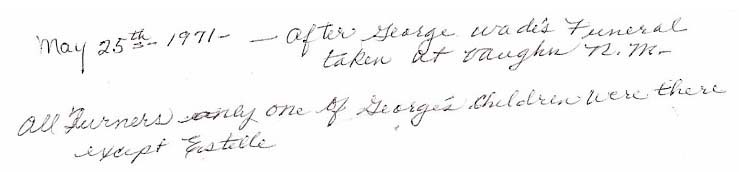 May 25th - 1971 - - After George Wade's Funeral
taken at Vaughn N.M. -
All Turners only one of George's Children were there
except Estelle